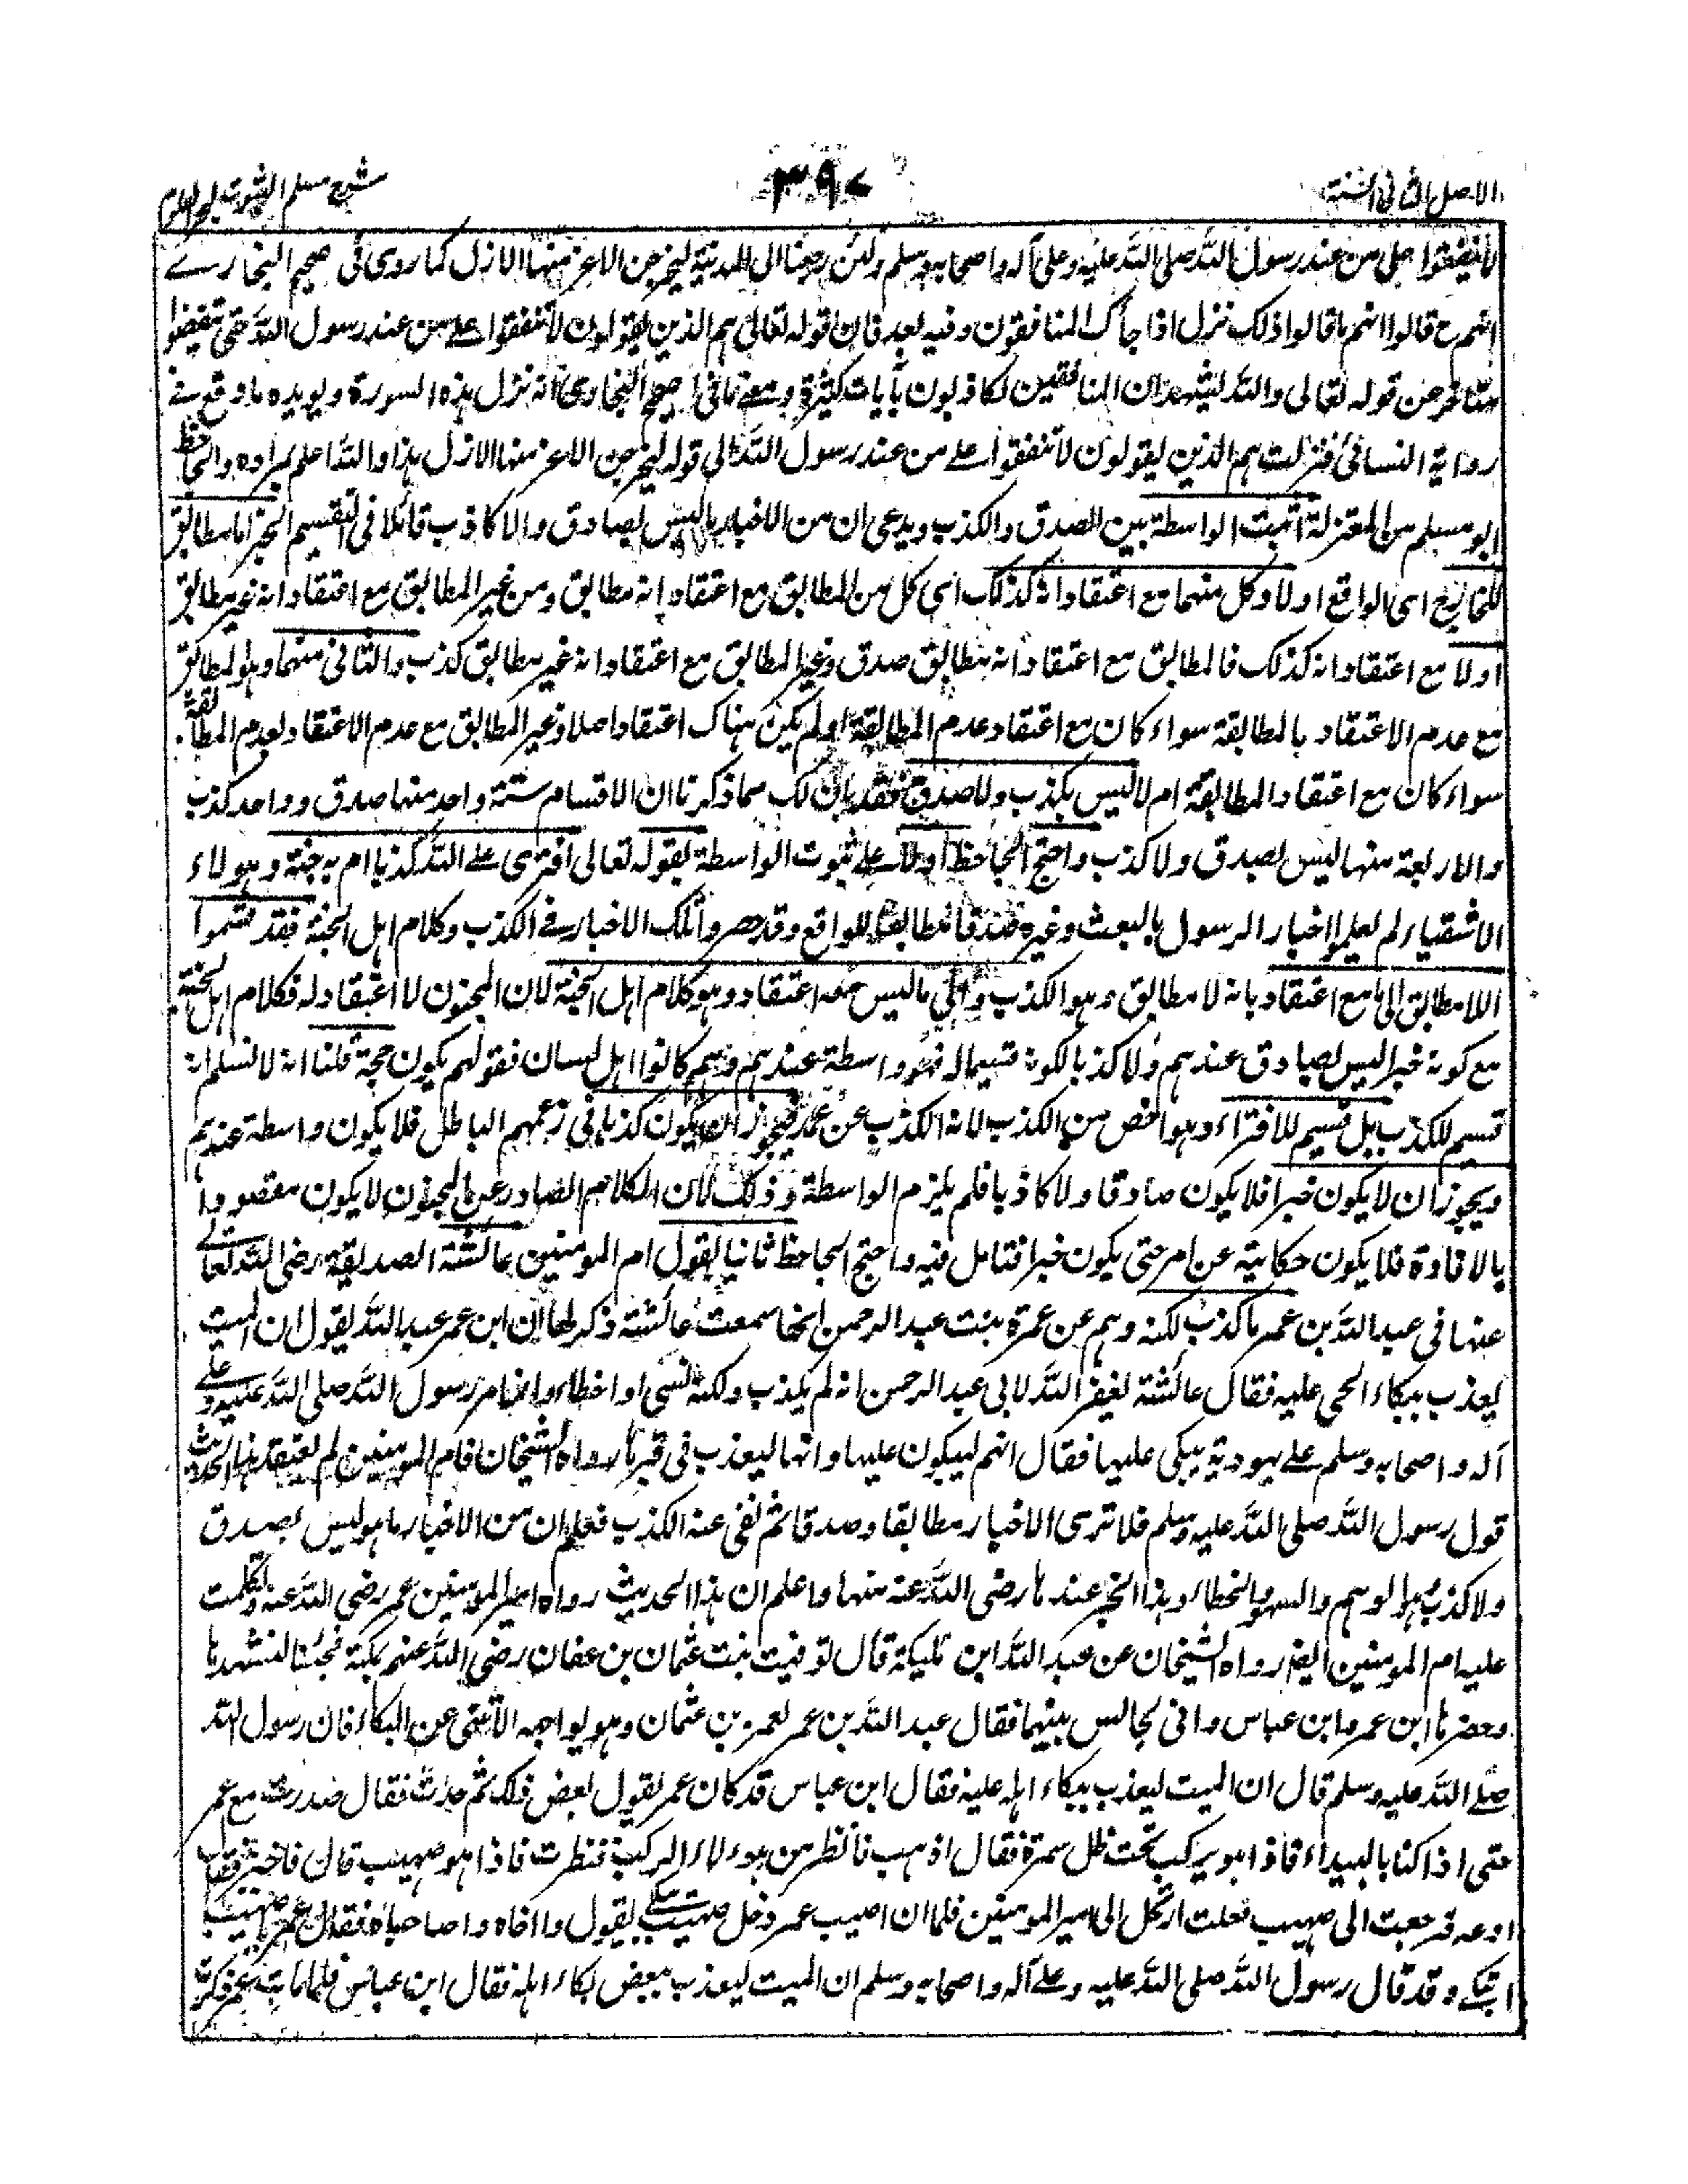 الاصل الثانی فی السنة
۳۹۷
شرح مسلم الثبوت لبحر العلوم
لا تنفقوا علی من عند رسول الله صلی الله علیه وعلی آله واصحابه وسلم ولئن رجعنا الی المدینة لیخرجن الاعز منها الاذل کما روی فی صحیح البخاری
انهم قالوا انهم ما قالوا ذلک فنزل اذا جاءک المنافقون وفیه بعد فان قوله تعالی هم الذین یقولون لا تنفقوا علی من عند رسول الله حتی ینفضوا
متاخر عن قوله تعالی والله یشهد ان المنافقین لکاذبون بآیات کثیرة ومعنی ما فی صحیح البخاری انه نزل هذه السورة ویویده ما وقع فی
روایة النسائی فنزلت هم الذین یقولون لا تنفقوا علی من عند رسول الله الی قوله لیخرجن الاعز منها الاذل هذا والله اعلم بمراده والجاحظ
ابو مسلم من المعتزلة اثبت الواسطة بین الصدق والکذب ویدعی ان من الاخبار ما لیس بصادق ولا کاذب قائلا فی تقسیم الخبر اما مطابق
للخارج ای الواقع او لا وکل منهما مع اعتقاد انه کذلک ای کل من المطابق مع اعتقاد انه مطابق ومن غیر المطابق مع اعتقاد انه غیر مطابق
او لا مع اعتقاد انه کذلک فالمطابق مع اعتقاد انه مطابق صدق وغیر المطابق مع اعتقاد انه غیر مطابق کذب والثانی منهما وهو المطابق
مع عدم الاعتقاد بالمطابقة سواء کان مع اعتقاد عدم المطابقة او لم یکن هناک اعتقاد اصلا وغیر المطابق مع عدم الاعتقاد بعدم المطابقة
سواء کان مع اعتقاد المطابقة ام لا لیس بکذب ولا صدق فقد بان لک مما ذکرنا ان الاقسام ستة واحد منها صدق وواحد کذب
والاربعة منها لیس بصدق ولا کذب واحتج الجاحظ اولا علی ثبوت الواسطة بقوله تعالی افتری علی الله کذبا ام به جنة وهولاء
الاشقیاء لم یعلموا اخبار الرسول بالبعث وغیره صدقا مطابقا للواقع وقد حصروا تلک الاخبار فی الکذب وکلام اهل الجنة فقد قسموا
اللا مطابق الی ما مع اعتقاد بانه لا مطابق وهو الکذب والی ما لیس معه اعتقاد وهو کلام اهل الجنة لان المجنون لا اعتقاد له فکلام اهل الجنة
مع کونه خبرا لیس بصادق عندهم ولا کذبا لکونه قسیما له فهو واسطة عندهم وهم کانوا اهل لسان فقولهم یکون حجة قلنا انه لا نسلم انه
قسیم للکذب بل قسیم للافتراء وهو اخص من الکذب لانه الکذب عن عمد فیجوز ان یکون کذبا فی زعمهم الباطل فلا یکون واسطة عندهم
ویجوز ان لا یکون خبرا فلا یکون صادقا ولا کاذبا فلم یلزم الواسطة وذلک لان الکلام الصادر عن المجنون لا یکون مقصودا
بالافادة فلا یکون حکایة عن امر حتی یکون خبرا فتامل فیه واحتج الجاحظ ثانیا بقول ام المومنین عائشة الصدیقة رضی الله تعالی
عنها فی عبد الله بن عمر ما کذب لکنه وهم عن عمرة بنت عبد الرحمن انها سمعت عائشة ذکر لها ان ابن عمر عبد الله یقول ان المیت
یعذب ببکاء الحی علیه فقال عائشة یغفر الله لابی عبد الرحمن انه لم یکذب ولکنه نسی او اخطاء وانما مر رسول الله صلی الله علیه وعلی
آله واصحابه وسلم علی یهودیة یبکی علیها فقال انهم لیبکون علیها وانها لیعذب فی قبرها رواه الشیخان فام المومنین لم یعتقد هذا الحدیث
قول رسول الله صلی الله علیه وسلم فلا تری الاخبار مطابقا وصدقا ثم نفی عنه الکذب فعلم ان من الاخبار ما هو لیس بصدق
ولا کذب هو الوهم والسهو والخطاء وهذا الخبر عندها رضی الله عنه منها واعلم ان هذا الحدیث رواه امیر المومنین عمر رضی الله عنه وتکلمت
علیه ام المومنین ایضا رواه الشیخان عن عبد الله ابن ملیکة قال توفیت بنت عثمان بن عفان رضی الله عنهم بمکة فجئنا لنشهدها
وحضرها ابن عمر وابن عباس وانی لجالس بینهما فقال عبد الله بن عمر لعمر بن عثمان وهو یواجهه الا تنهی عن البکاء فان رسول الله
صلی الله علیه وسلم قال ان المیت لیعذب ببکاء اهله علیه فقال ابن عباس قد کان عمر یقول بعض ذلک ثم حدث فقال صدرت مع عمر
حتی اذا کنا بالبیداء فاذا هو برکب تحت ظل سمرة فقال اذهب فانظر من هولاء الرکب فنظرت فاذا هو صهیب قال فاخبرته فقال
ادعه فرجعت الی صهیب فقلت ارتحل الی امیر المومنین فلما ان اصیب عمر دخل صهیب یبکی یقول وااخاه واصاحباه فقال عمر یا صهیب
اتبکی وقد قال رسول الله صلی الله علیه وعلی آله واصحابه وسلم ان المیت لیعذب ببعض بکاء اهله فقال ابن عباس فلما مات عمر ذکرت